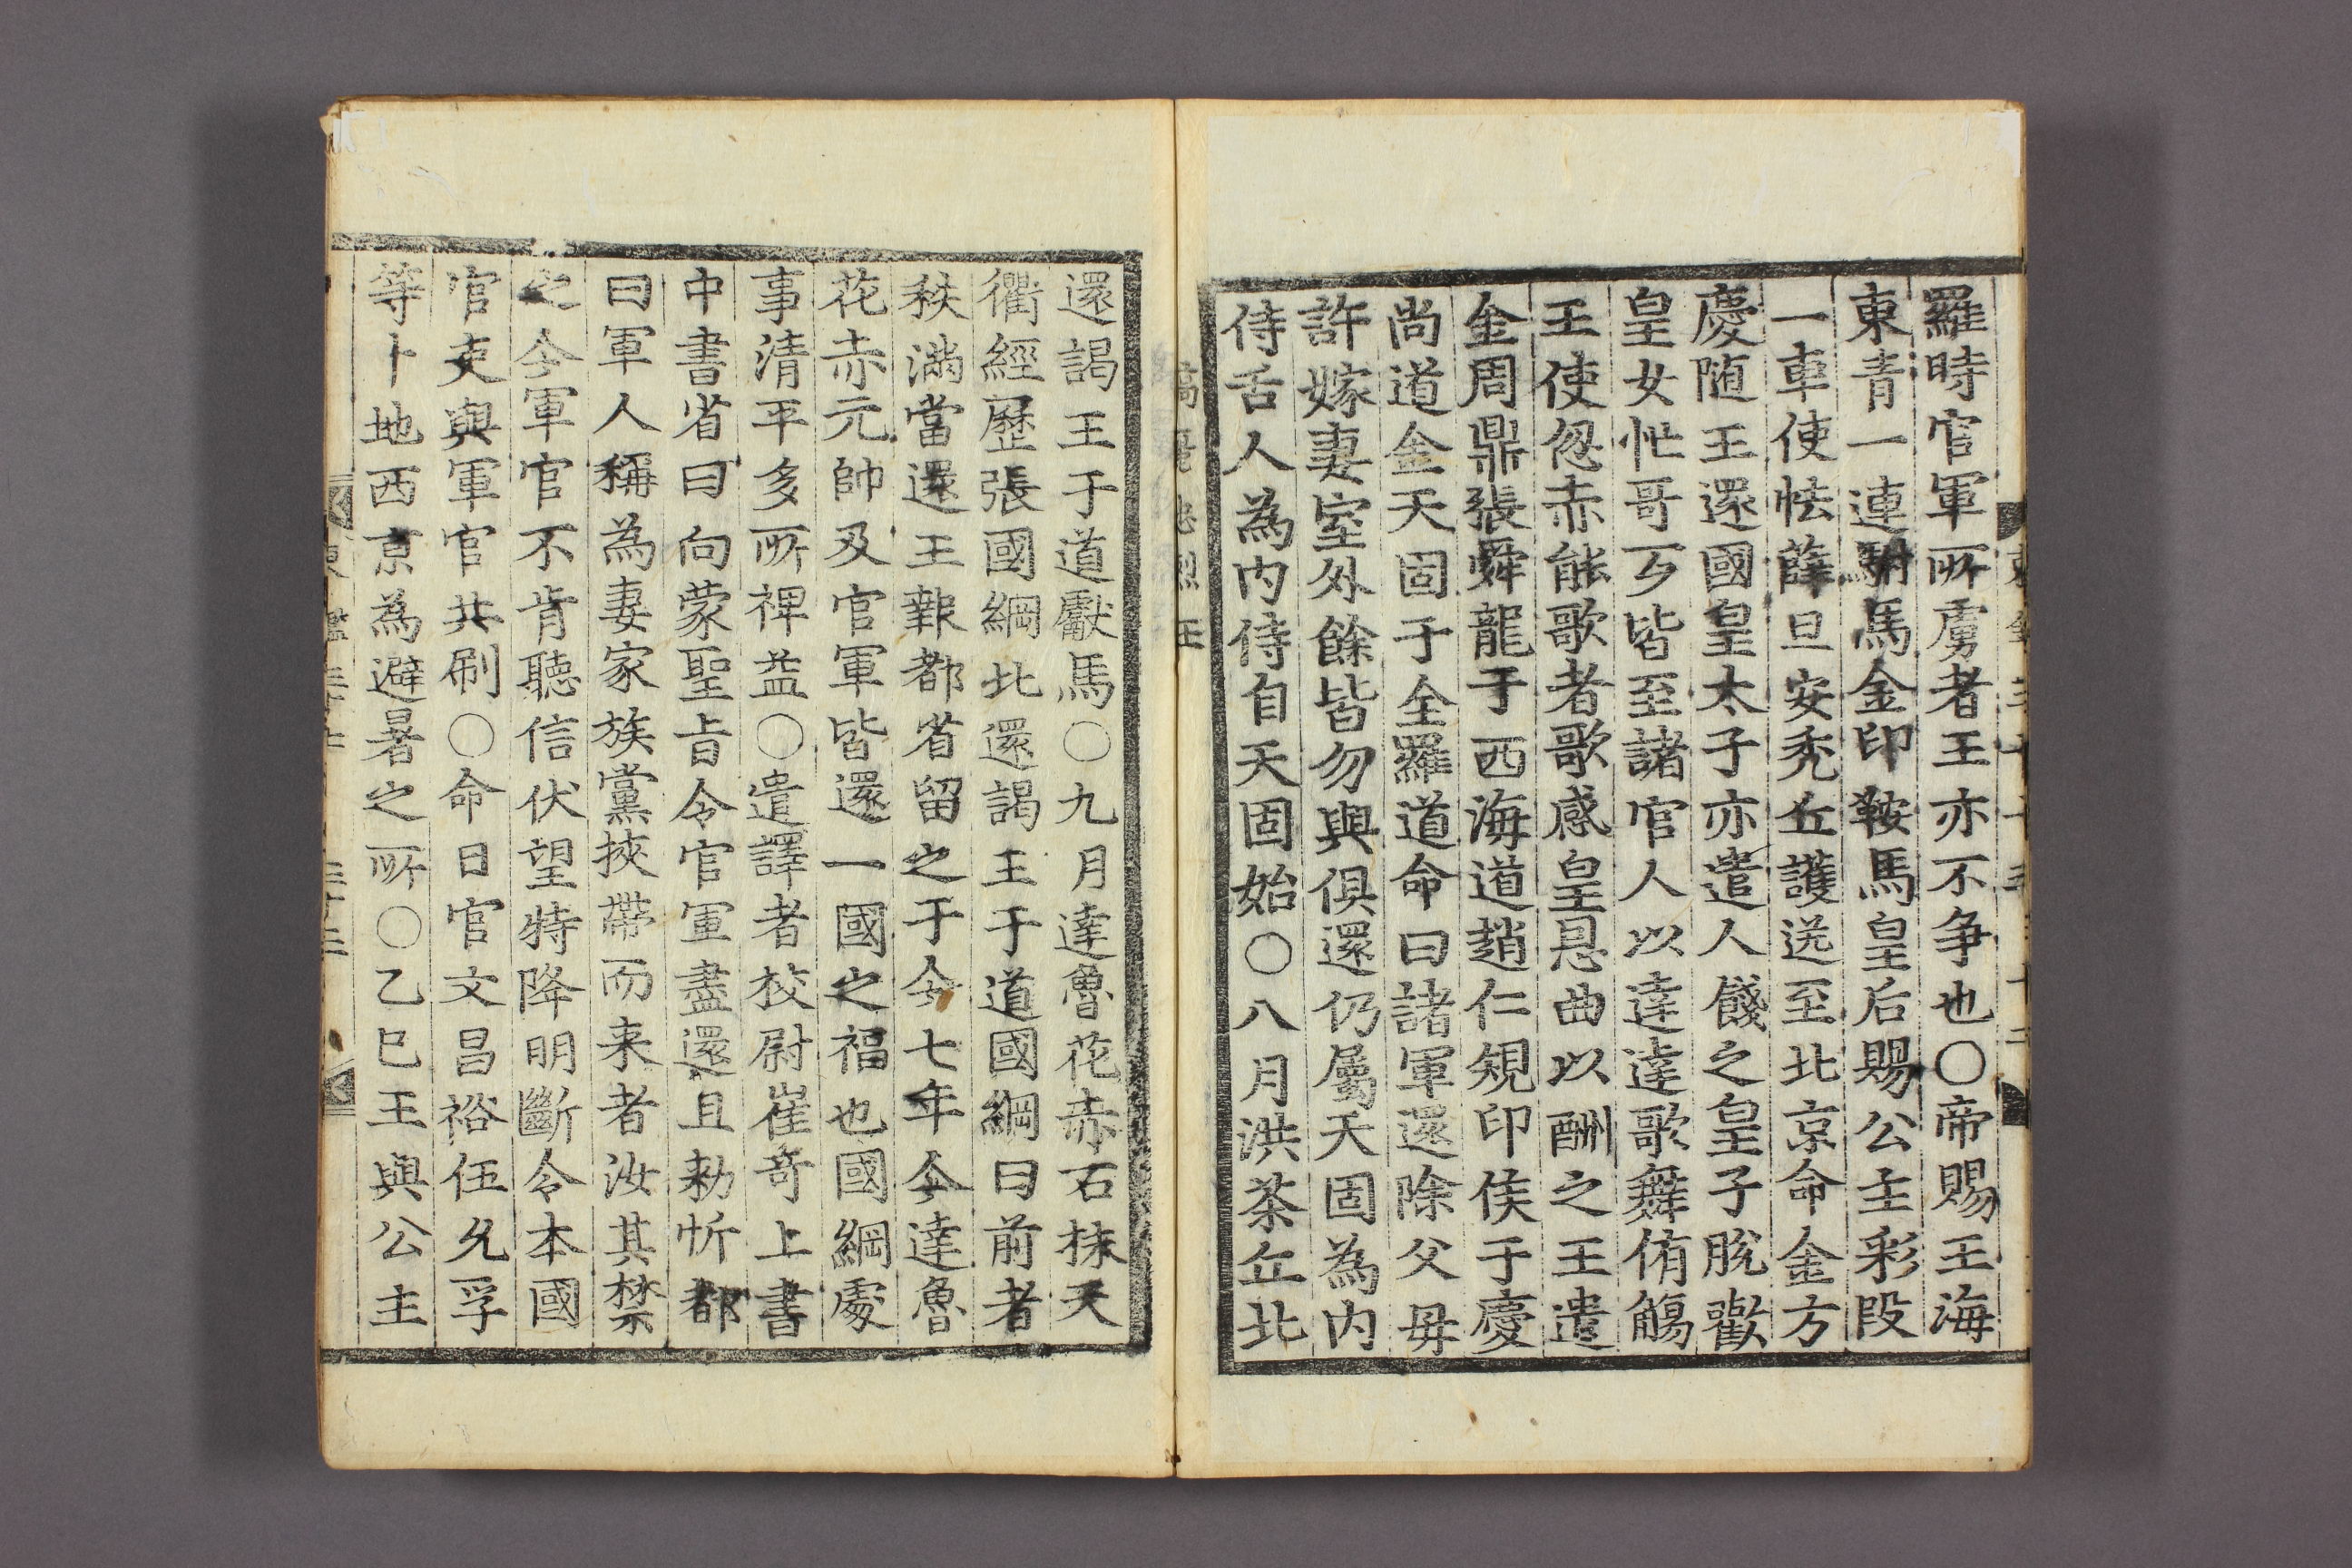 羅時官軍所虜者王亦不争也〇帝賜王海
東青一連駙馬金印鞍馬皇后賜公主彩段
一車使怯薛旦安禿丘護送至北京命金方
慶随王還國皇太子亦遣人餞之皇子脫歡
皇女忙哥歹皆至諸官人以達達歌舞侑觴
王使忽赤能歌者歌感皇恩曲以酬之王遣
金周鼎張舜龍于西海道趙仁規印侯于慶
尚道金天固于全羅道命曰諸軍還除父毋
許嫁妻室外餘皆勿與俱還仍屬天固為内
侍舌人為内侍自天固始〇八月洪茶丘北
還謁王于道獻馬〇九月達魯花赤石抹天
衢經歷張國綱北還謁王于道國綱曰前者
秩滿當還王報都省留之于今七年今達魯
花赤元帥及官軍皆還一國之福也國綱處
事清平多所裨益〇遣譯者校尉崔奇上書
中書省曰向蒙聖旨令官軍盡還且勑忻都
曰軍人稱為妻家族黨挾帶而来者汝其禁
之今軍官不肯聽信伏望特降明斷令本國
官吏與軍官共刷〇命日官文昌裕伍允孚
等卜地西京為避暑之所〇乙巳王與公主